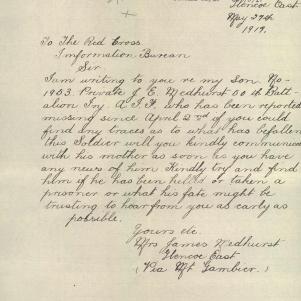 Glencoe East
May 29th
1917.
To The Red Cross
Information Bureau
Sir
I am writing to you re my Son No-
1903. Private J. E. Medhurst 60 th Batt-
alion Inf. A.I.F. who has been reported
missing since April 2nd if you could
find any traces as to what has befallen
this Soldier will you kindly communicate
with his mother as soon as you have
any news of him Kindly try and find
him if he has been killed or taken a
prisoner or what his fate might be
trusting to hear from you as early as
possible.
Yours etc.
Mrs James Medhurst
Glencoe East
(Via Mt Gambier.)